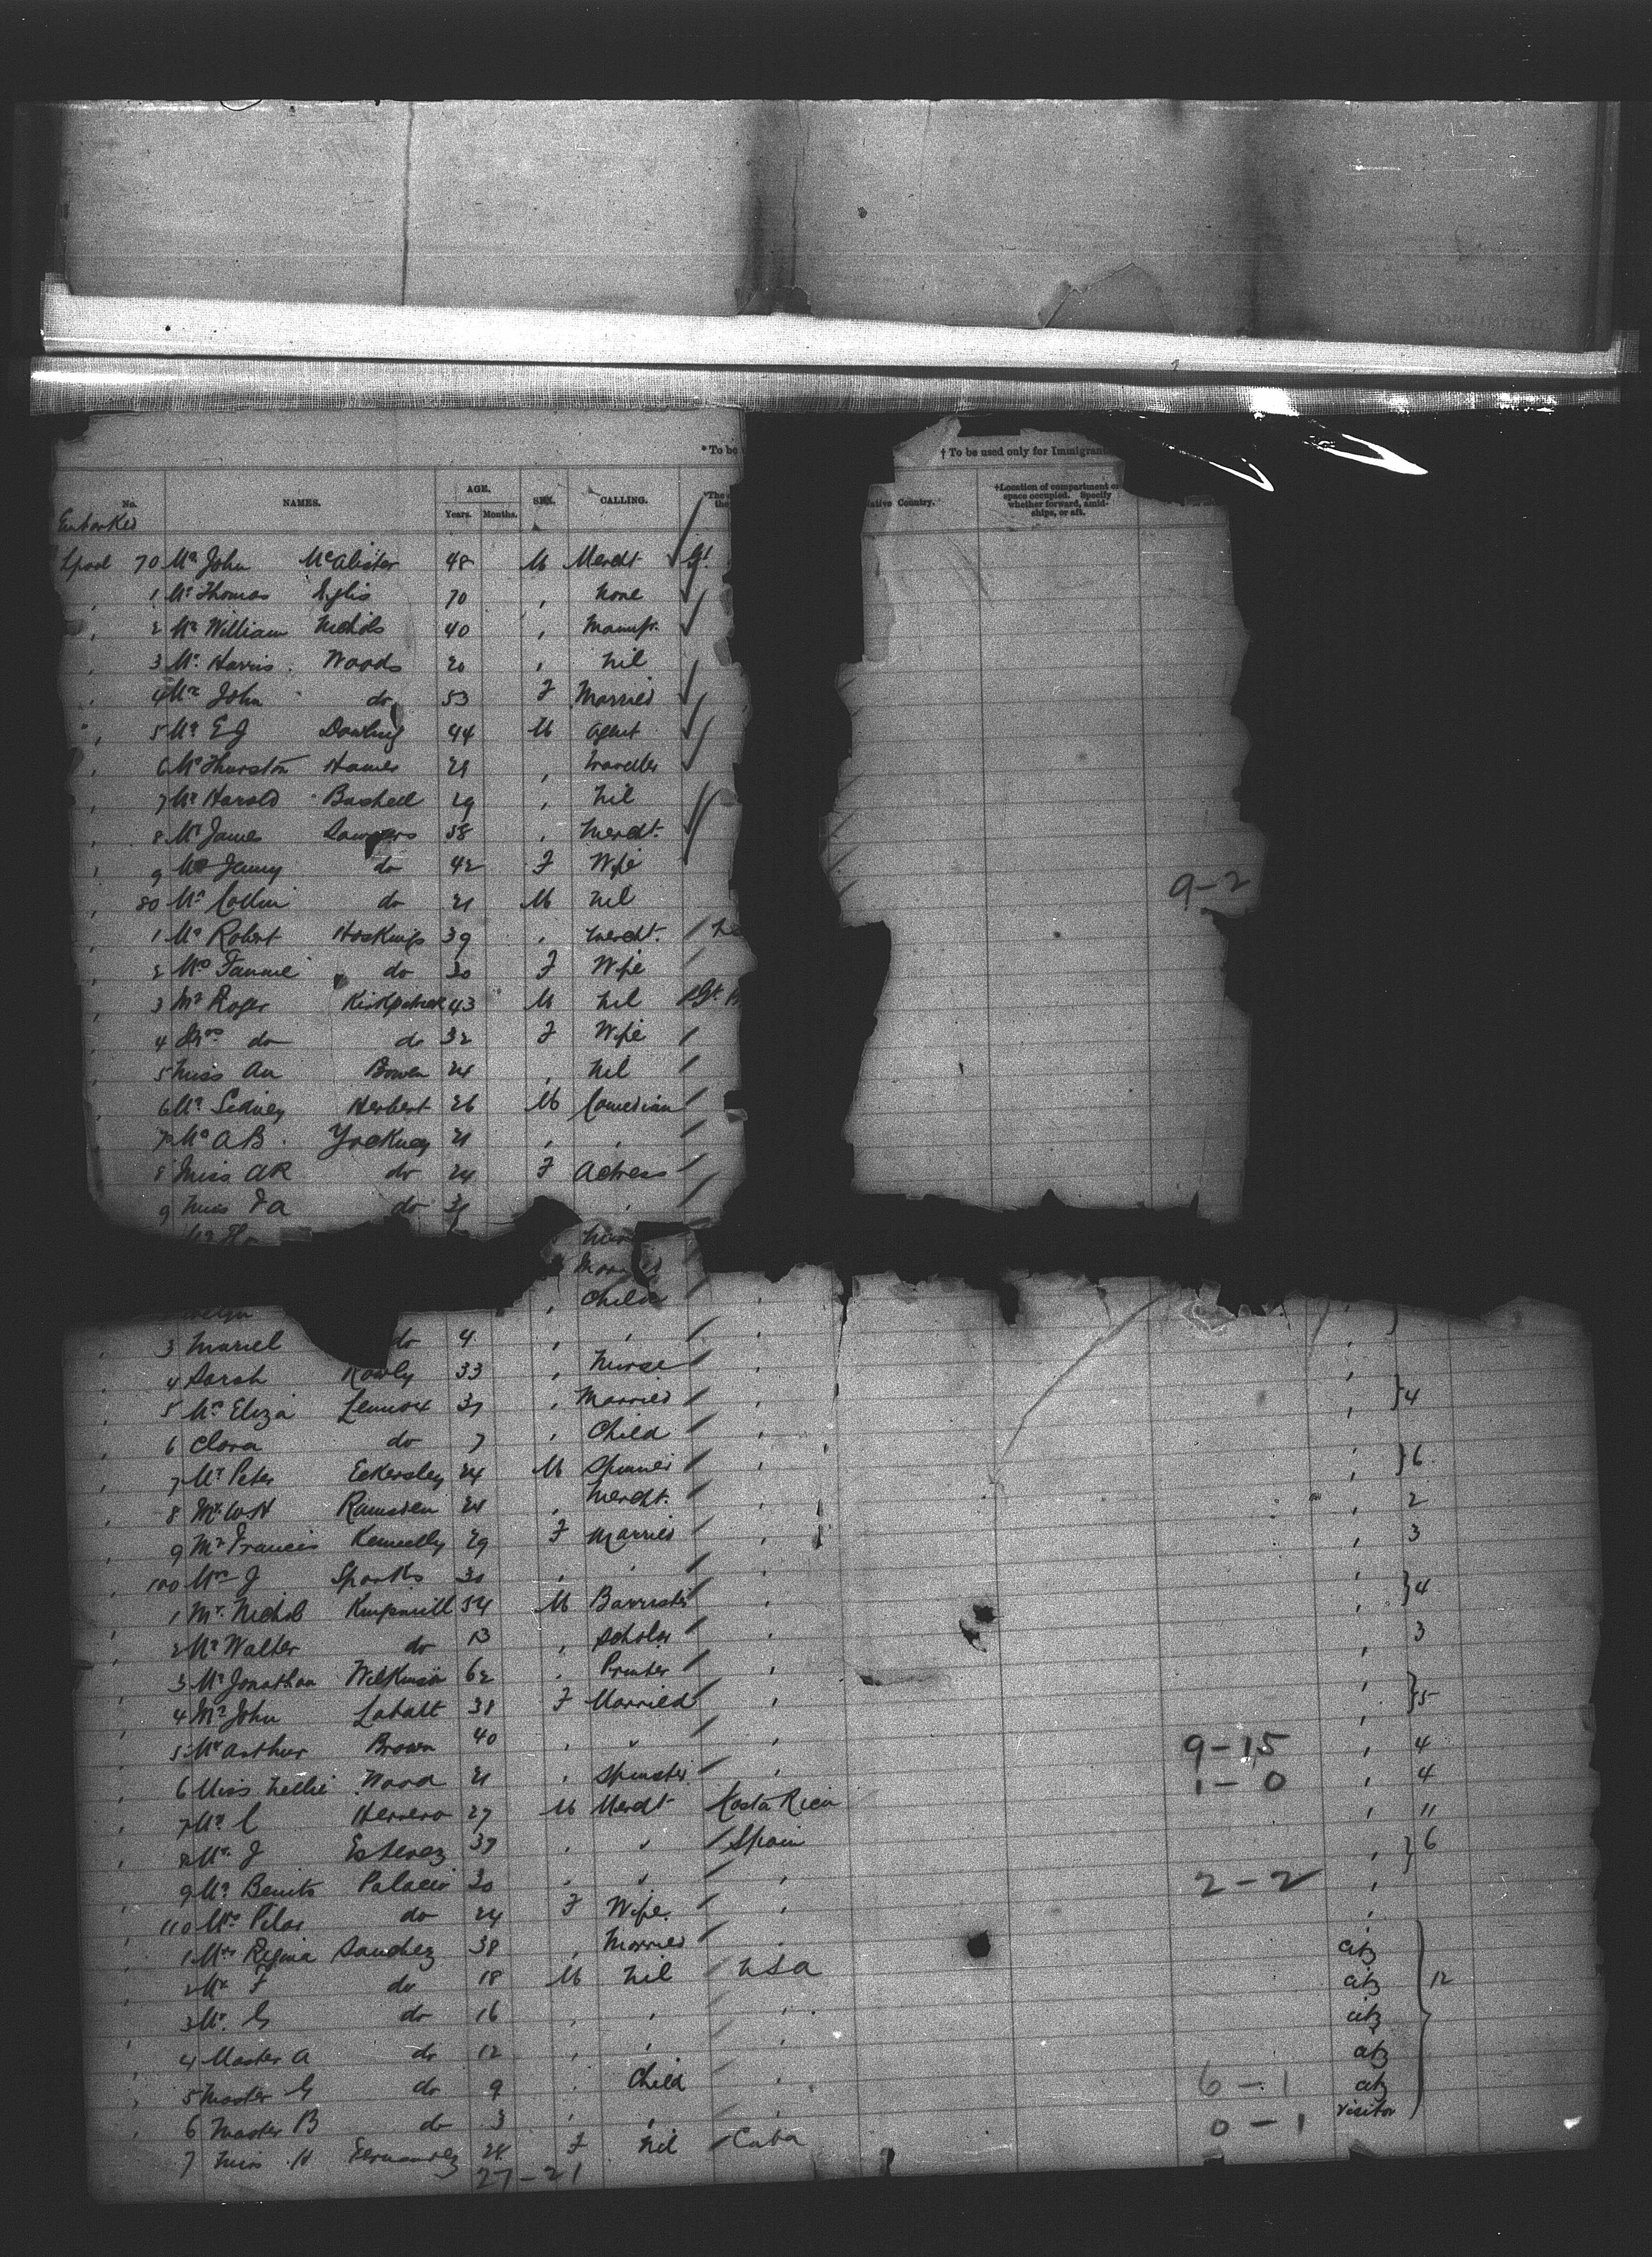 * To be
† To be used only for Immigran
No. NAMES. AGE. Years. Months. SEX. CALLING. *The the ative Country. †Location of compartment or space occupied. Specify whether forward, amid-ships, or aft.
Embarked
Lpool 70 Mr John McAlister 48 M Mercht Gt.
1 Mr Thomas 70 , None
2 Mr William Nichols 40 , Manufr.
3 Mr Harris Woods 20 , Nil
4 Mrs John do 53 F Married
5 Mr E J Dowling 44 M Agent
6 Mr Thurston Hamer , Traveller
7 Mr Harold Bushell 29 , Nil
8 Mr James 58 , Mercht.
9 Mrs Jenny do 42 F Wife
9-2
80 Mr Collin do 21 M Nil
1 Mr Robert Hoskings 39 , Mercht.
2 Mrs Fannie do 30 F Wife
3 Mr Roger Kirkpatrick 43 M Nil Gt. B
4 Mrs do do 32 F Wife
5 Miss Au Bowen 24 , Nil
6 Mr Sidney Herbert 26 M Comedian
7 Mr A B. Yockney 21 , ,
8 Miss A R do 24 F Actress
9 Miss do ,
Child
3 Muriel do 4 , ,
4 Sarah Rowly 33 , Nurse
5 Mrs Eliza Lennox 37 , Married }4
6 Clara do 7 , Child
7 Mr Peter Eckersley 24 M Spinner }6
8 Mr W H Ramsden 24 , Mercht. 2
9 Mrs Francis Kennelly 29 F Married 3
100 Mrs J Sparks 30 , ,
1 Mr. Nichol Kingsmill 54 M Barrister }4
2 Mr Walter do 13 , Scholar 3
3 Mr Jonathan Wilkinson 62 , Printer
4 Mrs John Labatt 38 F Married }5
5 Mrs Arthur Brown 40 , " 9-15 4
6 Miss Nellie Wood 21 , Spinster 1-0 4
7 Mr C Herrero 27 M Mercht Costa Rica "
8 Mr. J Estevez 37 , " Spain }6
9 Mr Benito Palacio 30 , " , 2-2
110 Mrs Pilar do 24 F Wife ,
1 Mrs Regina Sanchez 38 , Married , citz
2 Mr F do 18 M Nil USA citz } 12
3 Mr. G do 16 , , , citz
4 Master A do 12 , , , citz
5 Master G do 9 , Child , 6-1 citz
6 Master B do 3 , , , 0-1 visitor
7 Miss H Fernandez 24 F Nil Cuba
27-21